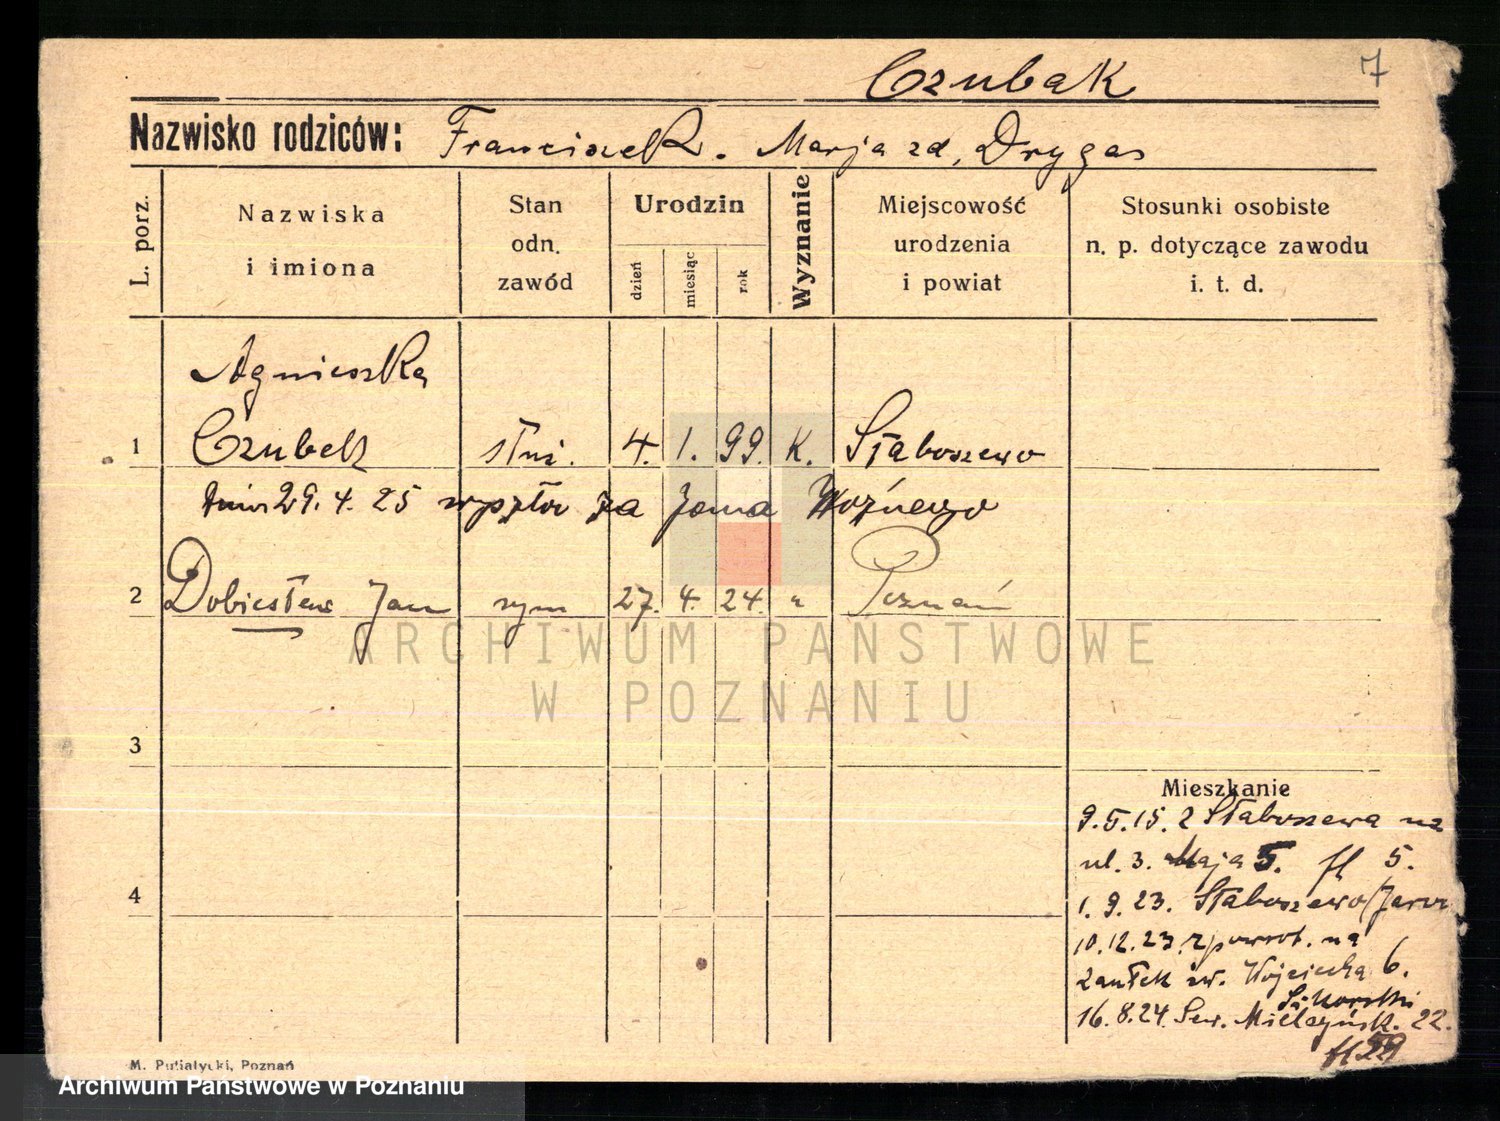 7
Czubak
Nazwisko rodziców: Franciszek. Marja zd. Drygas
L. porz.
Nazwiska
i imiona
Stan
odn.
zawód
Urodzin
dzień
miesiąc
rok
Wyznanie
Miejscowość
urodzenia
i powiat
Stosunki osobiste
n. p. dotyczące zawodu
i. t. d.
Agnieszka
1 Czubek służ. 4. 1. 99. K. Słaboszewo
dnia 29. 4. 25 wyszła za Jana Woźnego
2 Dobiesław Jan syn 27. 4. 24. " Poznań
ARCHIWUM PAŃSTWOWE
W POZNANIU
3
4
Mieszkanie
9. 5. 15. z Słaboszewa na
ul. 3. Maja 5. fl 5.
1. 9. 23. Słaboszewo
10. 12. 23. z powrot. na
zaułek św. Wojciecha 6.
Sikorski
16. 8. 24. Sew. Mielżyńsk. 22.
M. Putiatycki, Poznań
Archiwum Państwowe w Poznaniu